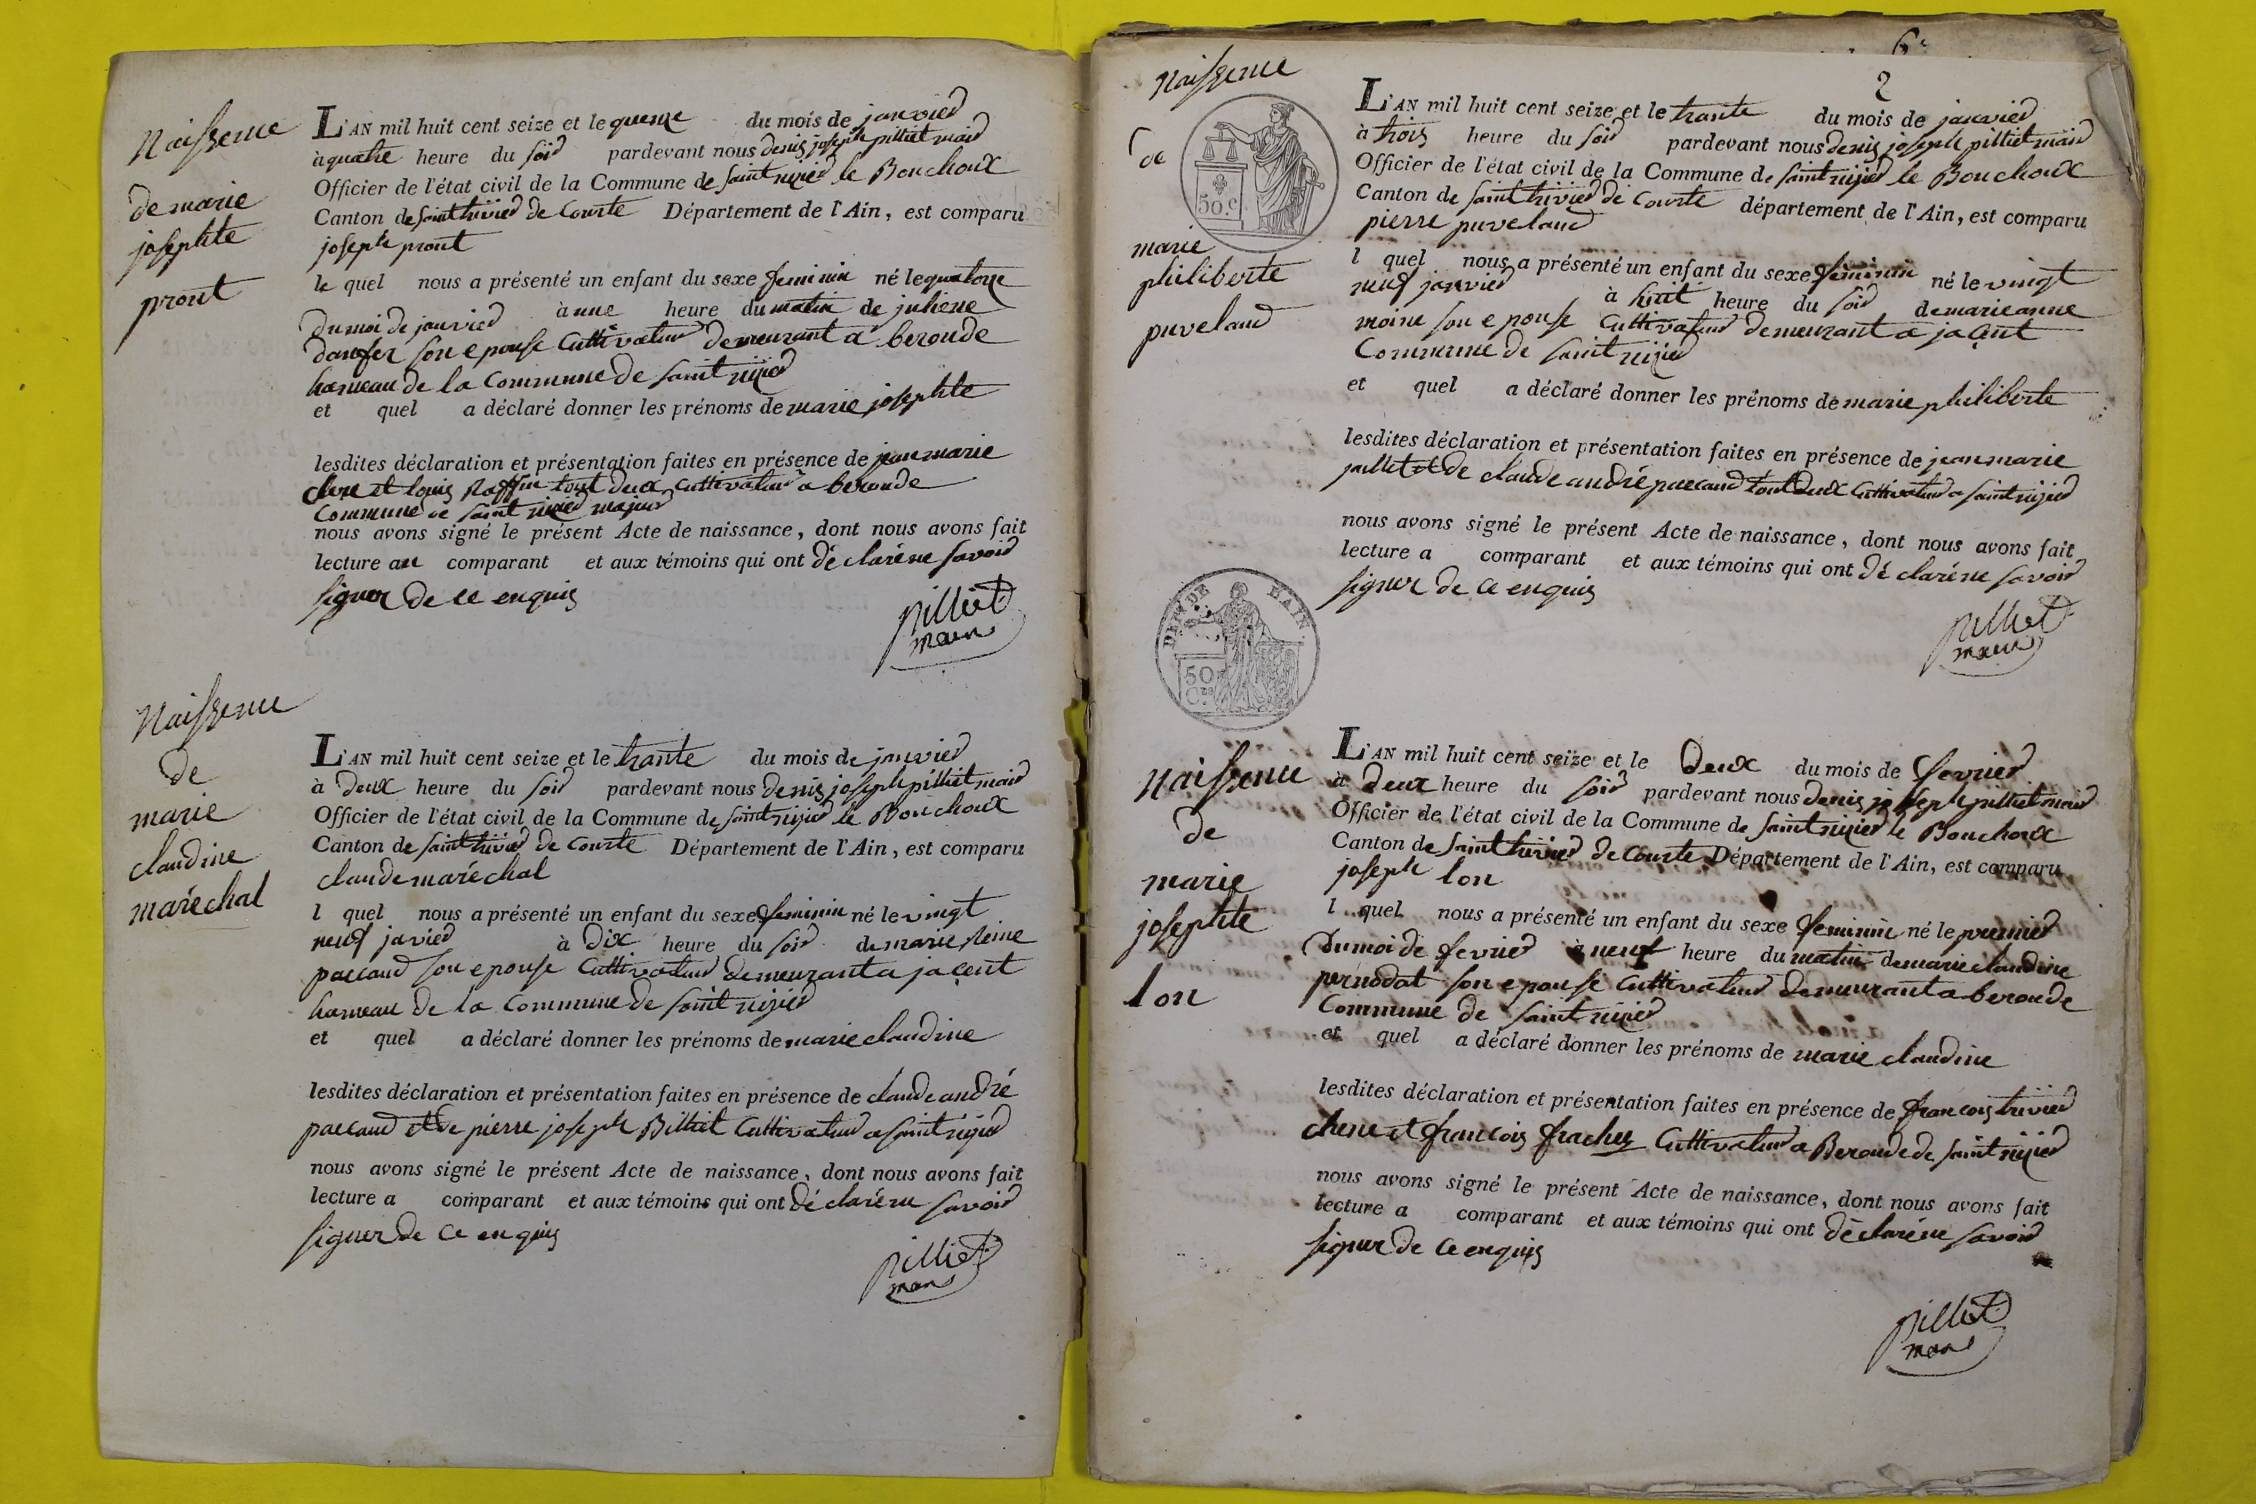 Naissence
de marie
josephte
prout
L'AN mil huit cent seize et le quenze du mois de janvier
à quatre heure du soir pardevant nous denis joseph pilliet mair
Officier de l'état civil de la Commune de saint nizier le Bouchoux
Canton de saint trivier de Courte Département de l'Ain, est comparu
joseph prout
le quel nous a présenté un enfant du sexe feminin né le quatorze
du moi de janvier à une heure du matin de juliene
danfer son epouse Cultivateur demeurant a beroude
hameau de la Commune de saint nizier
et quel a déclaré donner les prénoms de marie josephte
lesdites déclaration et présentation faites en présence de jean marie
chene et louis Raffin tout deux Cultivateur a beroude
Commune de saint nizier majeur
nous avons signé le présent Acte de naissance, dont nous avons fait
lecture au comparant et aux témoins qui ont déclaré ne savoir
signer de ce enquis
pilliet
mair
Naissence
de
marie
claudine
maréchal
L'AN mil huit cent seize et le trante du mois de janvier
à deux heure du soir pardevant nous denis joseph pilliet mair
Officier de l'état civil de la Commune de saint nizier le Bouchoux
Canton de saint trivier de Courte Département de l'Ain, est comparu
claude maréchal
l quel nous a présenté un enfant du sexe feminin né le vingt
neuf javier à dix heure du soir de marie Reine
paccaud son epouse Cultivateur demeurant a jacent
hameau de la Commune de saint nizier
et quel a déclaré donner les prénoms de marie claudine
lesdites déclaration et présentation faites en présence de claude andré
paccaud et de pierre joseph Billiet Cultivateur a saint nizier
nous avons signé le présent Acte de naissance, dont nous avons fait
lecture a comparant et aux témoins qui ont déclaré ne savoir
signer de ce enquis
pilliet
mair
2
Naissence
de
marie
philiberte
puveland
50.c
L'AN mil huit cent seize et le trante du mois de janvier
à trois heure du soir pardevant nous denis joseph pilliet mair
Officier de l'état civil de la Commune de saint nizier le Bouchoux
Canton de saint trivier de Courte département de l'Ain, est comparu
pierre puveland
l quel nous a présenté un enfant du sexe feminin né le vingt
neuf janvier à huit heure du soir de marie anne
moine son epouse Cultivateur demeurant a jacent
Commune de saint nizier
et quel a déclaré donner les prénoms de marie philiberte
lesdites déclaration et présentation faites en présence de jean marie
juillet et de claude andré paccaud tout deux Cultivateur a saint nizier
nous avons signé le présent Acte de naissance, dont nous avons fait
lecture a comparant et aux témoins qui ont déclaré ne savoir
signer de ce enquis
pilliet
mair
DEPT DE L'AIN.
50
Cmes
Naissence
de
marie
josephte
lon
L'AN mil huit cent seize et le deux du mois de fevrier
à deux heure du soir pardevant nous denis joseph pilliet mair
Officier de l'état civil de la Commune de saint nizier le Bouchoux
Canton de saint trivier de Courte Département de l'Ain, est comparu
joseph lon
l quel nous a présenté un enfant du sexe feminin né le premier
du moi de fevrier à neuf heure du matin de marie claudine
pernodat son epouse Cultivateur demeurant a beroude
Commune de saint nizier
et quel a déclaré donner les prénoms de marie claudine
lesdites déclaration et présentation faites en présence de francois trivier
chene et francois frachey Cultivateur a Beroude de saint nizier
nous avons signé le présent Acte de naissance, dont nous avons fait
lecture a comparant et aux témoins qui ont déclaré ne savoir
signer de ce enquis
pilliet
mair